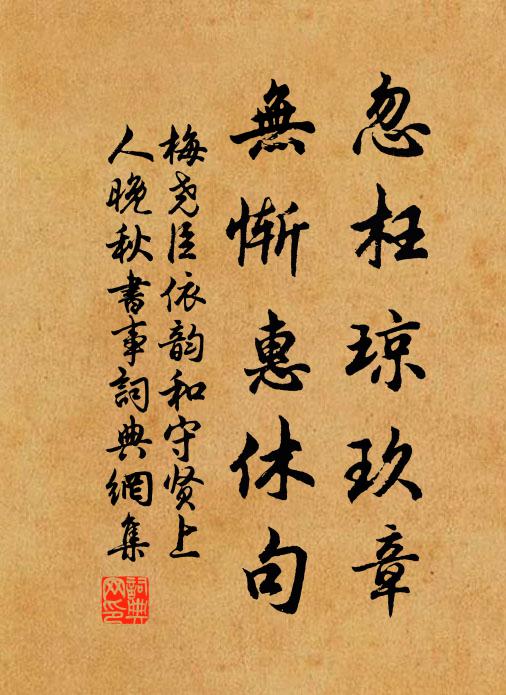 忽枉琼玖章
無慚惠休句
梅尧臣依韵和守贤上
人晚秋書事詞典網集
詞典網印